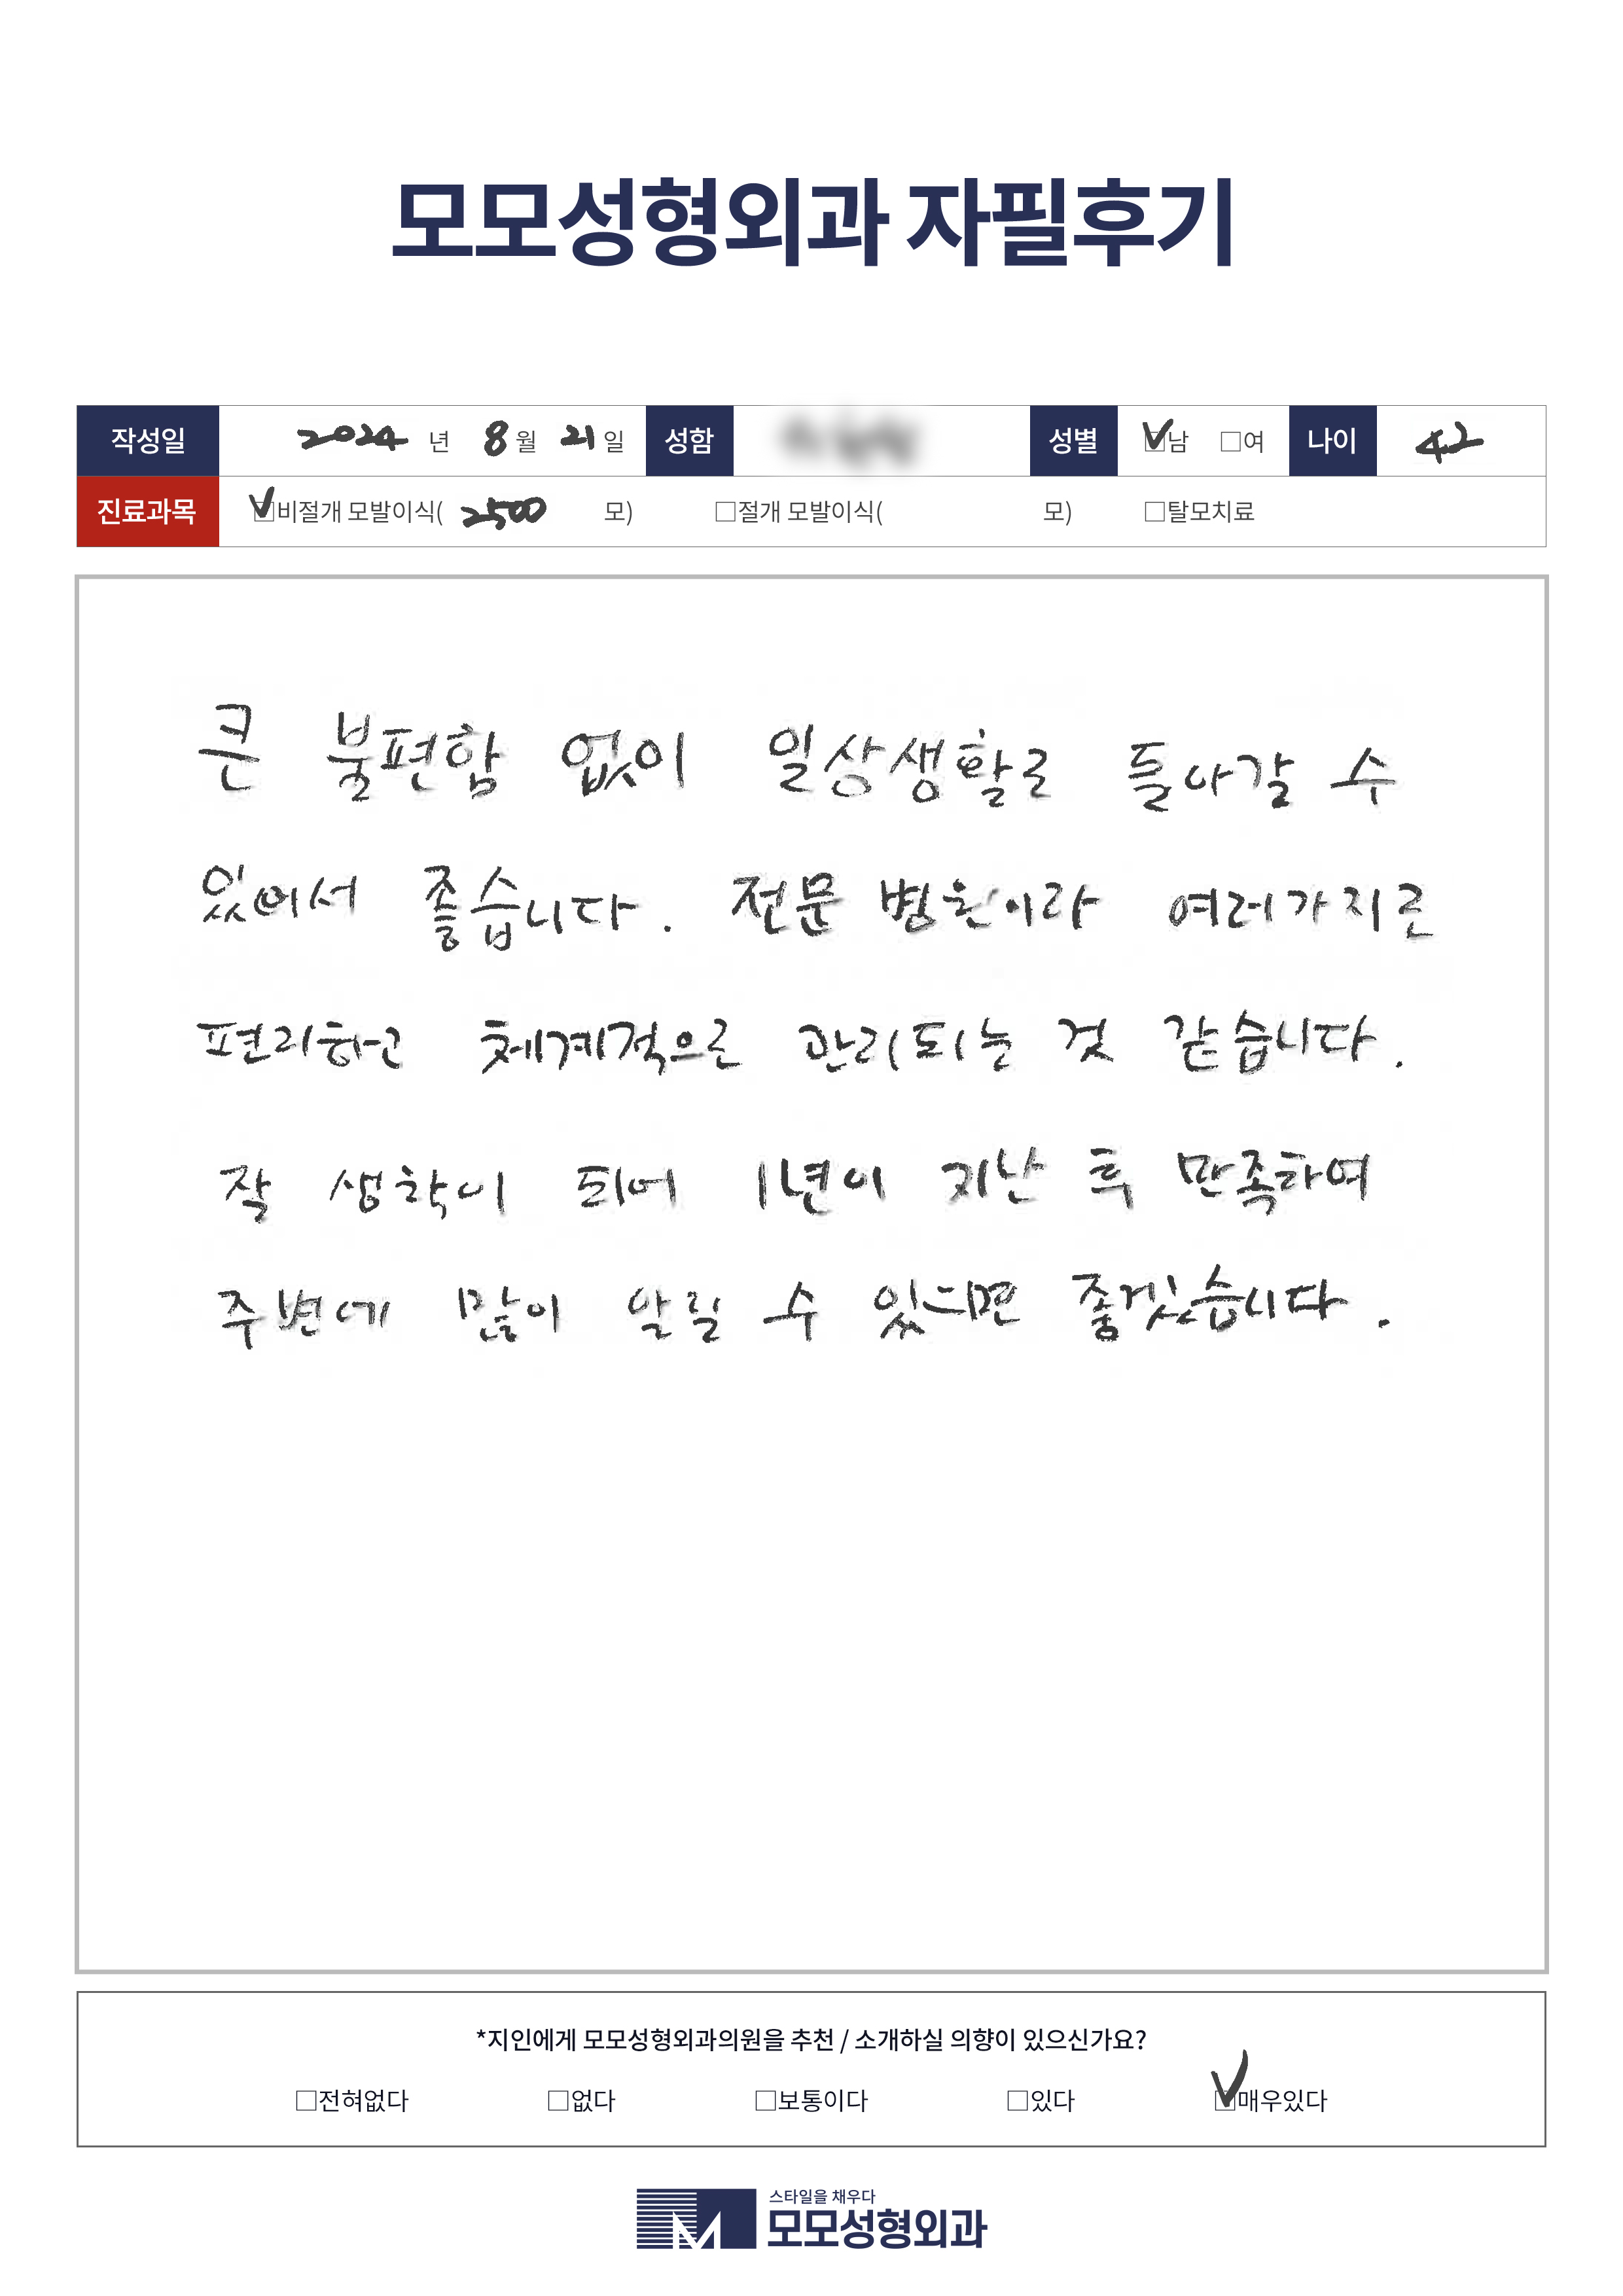 모모성형외과 자필후기
작성일 2024 년 8 월 21 일 성함 성별 ☑남 □여 나이 42
진료과목 ☑비절개 모발이식( 2500 모) □절개 모발이식( 모) □탈모치료
큰 불편함 없이 일상생활로 돌아갈 수
있어서 좋습니다. 전문 병원이라 여러가지로
편리하고 체계적으로 관리되는 것 같습니다.
잘 생착이 되어 1년이 지난 후 만족하여
주변에 많이 알릴 수 있으면 좋겠습니다.
*지인에게 모모성형외과의원을 추천 / 소개하실 의향이 있으신가요?
□전혀없다 □없다 □보통이다 □있다 ☑매우있다
스타일을 채우다
모모성형외과